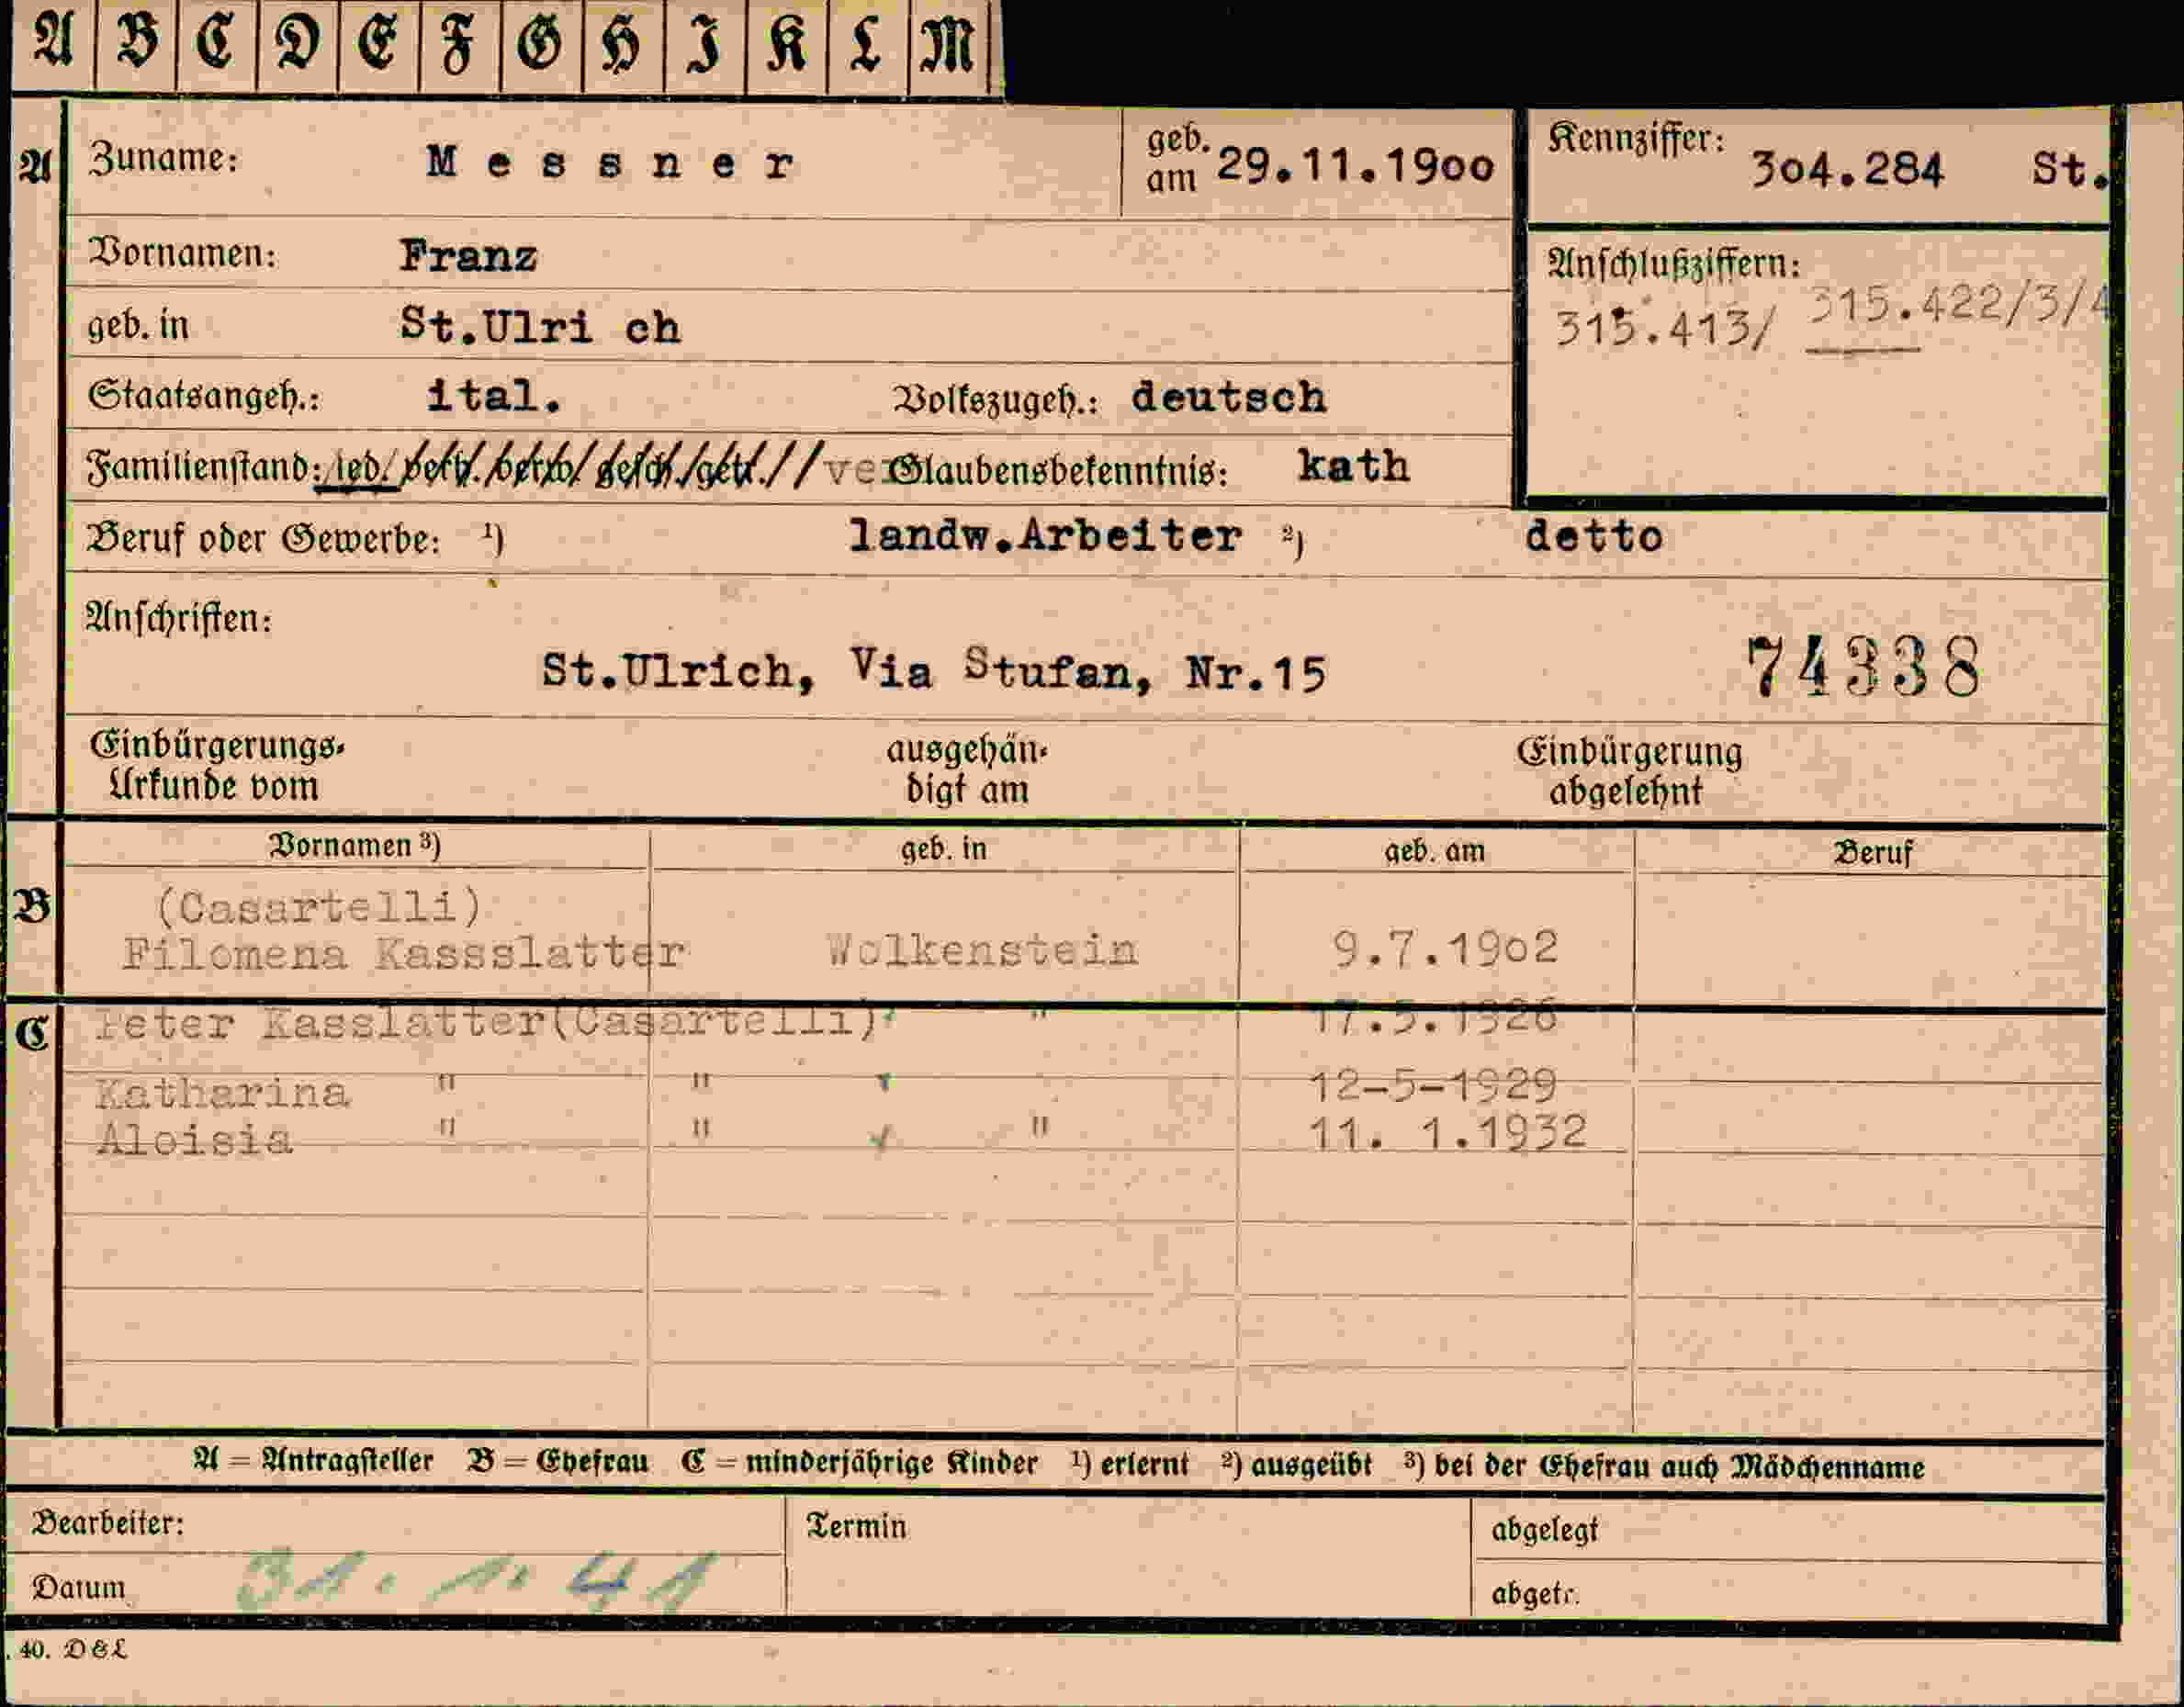 A B C D E F G H I K L M
A Zuname: Messner geb. am 29.11.1900 Kennziffer: 304.284 St.
Vornamen: Franz
Anschlußziffern:
315.413/ 315.422/3/4
geb. in St.Ulri ch
Staatsangeh.: ital. Volkszugeh.: deutsch
Familienstand: led./verh./verw./gesch./getr.// ver Glaubensbekenntnis: kath
Beruf oder Gewerbe: ¹) landw.Arbeiter ²) detto
Anschriften:
St.Ulrich, Via Stufan, Nr.15 74338
Einbürgerungs- ausgehän- Einbürgerung
Urkunde vom digt am abgelehnt
Vornamen ³) geb. in geb. am Beruf
B (Casartelli)
Filomena Kassslatter Wolkenstein 9.7.1902
C Peter Kasslatter(Casartelli) " 17.5.1926
Katharina " " 12-5-1929
Aloisia " " " 11. 1.1932
A = Antragsteller B = Ehefrau C = minderjährige Kinder ¹) erlernt ²) ausgeübt ³) bei der Ehefrau auch Mädchenname
Bearbeiter: Termin abgelegt
Datum 31. 1. 41 abgetr.
40. D&L